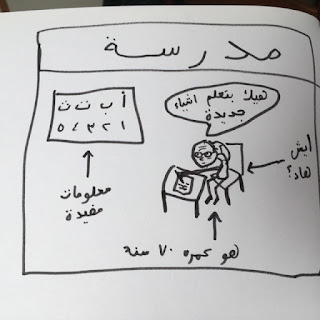 مدرسة
أ ب ت ث
١ ٢ ٣ ٤ ٥
معلومات
مفيدة
هيك بتعلم اشياء
جديدة
ايش
هاد؟
هو عمره ٧٠ سنة